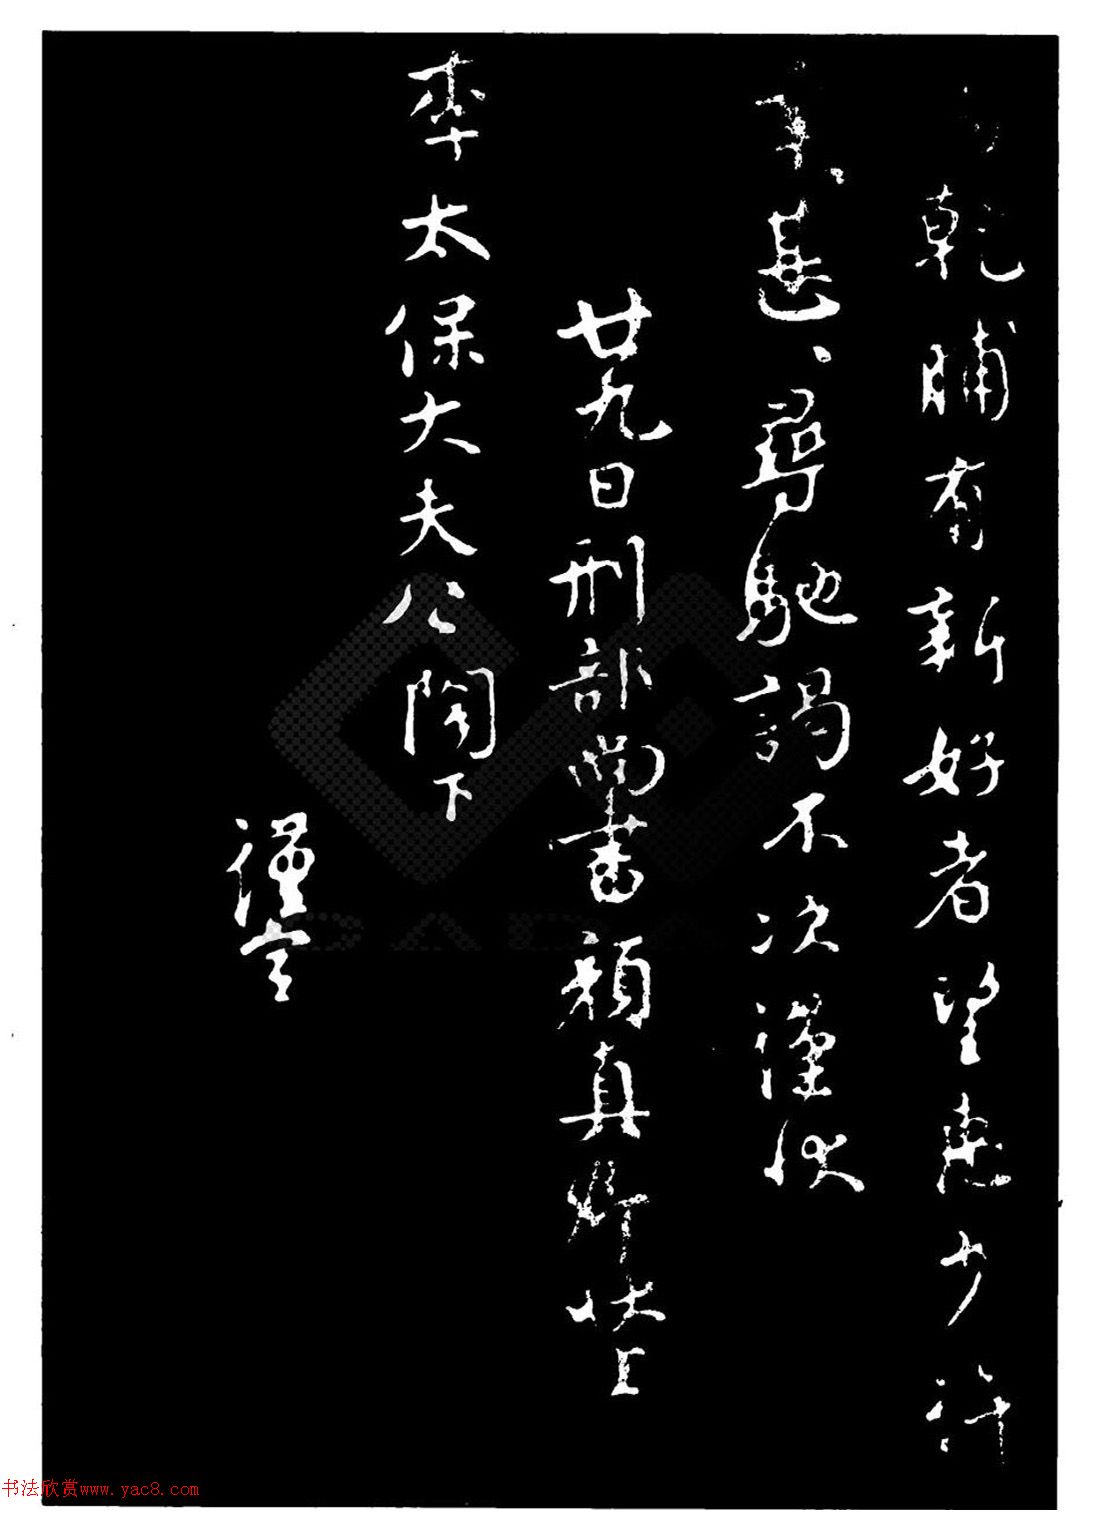 乾脯有新好者望惠少許
幸、甚、尋馳謁不次謹狀
廿九日刑部尚書顏真卿狀上
李太保大夫公閤下
謹空
书法欣赏www.yac8.com